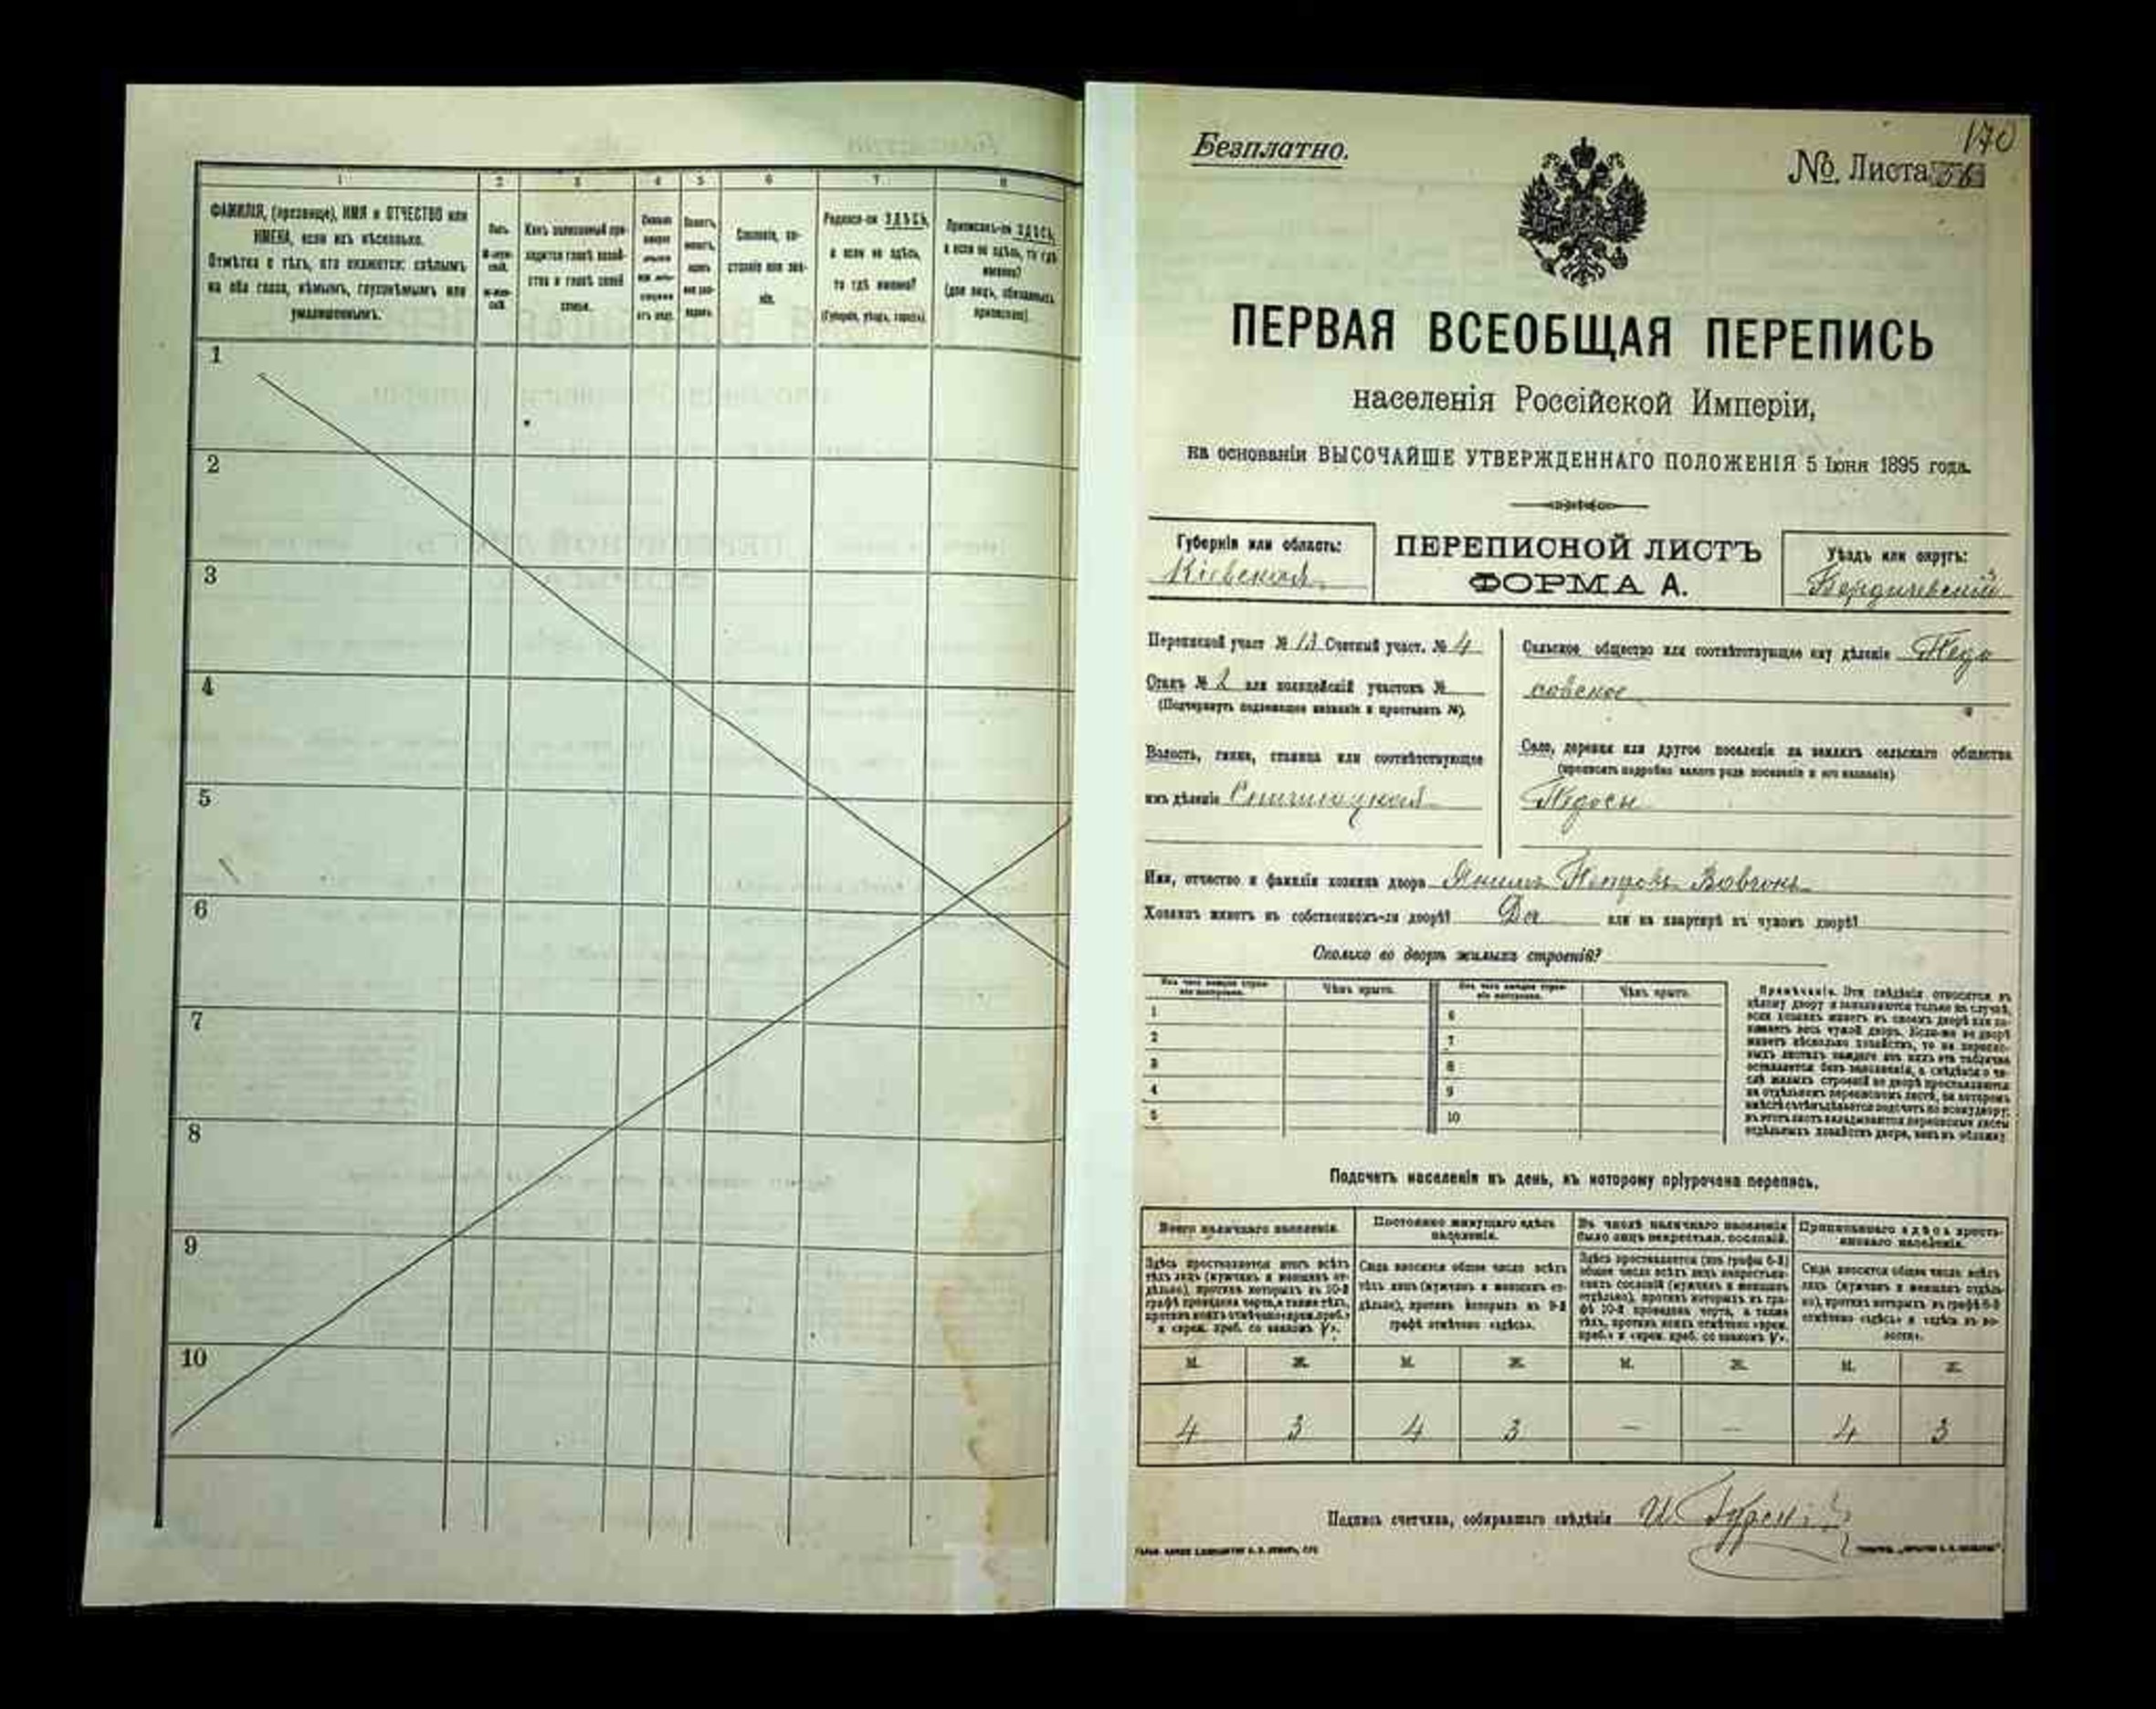 1 2 3 4 5 6 7 8
ФАМИЛІЯ, (прозвище), ИМЯ и ОТЧЕСТВО или
ИМЕНА, если ихъ нѣсколько.
Отмѣтка о тѣхъ, кто окажется: слѣпымъ
на оба глаза, нѣмымъ, глухонѣмымъ или
умалишеннымъ.
Полъ.
М-муж-
ской.
Ж-жен-
скій.
Какъ записанный при-
ходится главѣ хозяй-
ства и главѣ своей
семьи.
Сословіе, со-
стояніе или зва-
ніе.
Родился-ли ЗДѢСЬ,
а если не здѣсь,
то гдѣ именно?
(Губернія, уѣздъ, городъ).
Приписанъ-ли ЗДѢСЬ,
а если не здѣсь, то гдѣ
именно?
(для лицъ, обязанныхъ
припискою).
1
2
3
4
5
6
7
8
9
10
170
Безплатно.
№ Листа
ПЕРВАЯ ВСЕОБЩАЯ ПЕРЕПИСЬ
населенія Россійской Имперіи,
на основаніи ВЫСОЧАЙШЕ УТВЕРЖДЕННАГО ПОЛОЖЕНІЯ 5 Іюня 1895 года.
Губернія или область:
Кіевская
ПЕРЕПИСНОЙ ЛИСТЪ
ФОРМА А.
Уѣздъ или округъ:
Бердичевскій
Переписной участ № 13 Счетный участ. № 4
Станъ № 2 или полицейскій участокъ №
(Подчеркнуть подлежащее названіе и проставить №).
Волость, гмина, станица или соотвѣтствующее
имъ дѣленіе
Сельское общество или соотвѣтствующее ему дѣленіе Педо
совское
Село, деревня или другое поселеніе на земляхъ сельскаго общества
(прописать подробно какого рода поселеніе и его названіе)
Педосы
Имя, отчество и фамилія хозяина двора Якимъ Петровъ Вовчокъ
Хозяинъ живетъ въ собственномъ-ли дворѣ? Да или на квартирѣ въ чужомъ дворѣ?
Сколько во дворѣ жилыхъ строеній?
Изъ чего каждое строе-
ніе построено.
Чѣмъ крыто.
Изъ чего каждое строе-
ніе построено.
Чѣмъ крыто.
1 6
2 7
3 8
4 9
5 10
Примѣчаніе. Эти свѣдѣнія относятся къ
цѣлому двору и заполняются только въ случаѣ,
если хозяинъ живетъ въ своемъ дворѣ или за-
нимаетъ весь чужой дворъ. Если-же во дворѣ
живетъ нѣсколько хозяйствъ, то на перепис-
ныхъ листахъ каждаго изъ нихъ эта табличка
оставляется безъ заполненія, а свѣдѣнія о чи-
слѣ жилыхъ строеній во дворѣ проставляются
на отдѣльномъ переписномъ листѣ, на которомъ
вмѣстѣ съ тѣмъ дѣлается подсчетъ по всему двору;
въ этотъ листъ вкладываются переписные листы
отдѣльныхъ хозяйствъ двора, какъ въ обложку
Подсчетъ населенія въ день, къ которому пріурочена перепись.
Всего наличнаго населенія.
Постоянно живущаго здѣсь
населенія.
Въ числѣ наличнаго населенія
было лицъ некрестьян. сословій.
Приписаннаго здѣсь кресть-
янскаго населенія.
Здѣсь проставляется итогъ всѣхъ
тѣхъ лицъ (мужчинъ и женщинъ от-
дѣльно), противъ которыхъ въ 10-й
графѣ проведена черта, а также тѣхъ,
противъ коихъ отмѣчено «врем. преб.»
и «врем. преб. со знакомъ V».
Сюда вносится общее число всѣхъ
тѣхъ лицъ (мужчинъ и женщинъ от-
дѣльно), противъ которыхъ въ 9-й
графѣ отмѣчено «здѣсь».
Здѣсь проставляется (изъ графы 6-й)
общее число всѣхъ лицъ некрестьян-
скихъ сословій (мужчинъ и женщинъ
отдѣльно), противъ которыхъ въ гра-
фѣ 10-й проведена черта, а также
тѣхъ, противъ коихъ отмѣчено «врем.
преб.» и «врем. преб. со знакомъ V».
Сюда вносится общее число всѣхъ
лицъ (мужчинъ и женщинъ отдѣль-
но), противъ которыхъ въ графѣ 8-й
отмѣчено «здѣсь» и «здѣсь въ во-
лости».
М. Ж. М. Ж. М. Ж. М. Ж.
4 3 4 3 — — 4 3
Подпись счетчика, собиравшаго свѣдѣнія